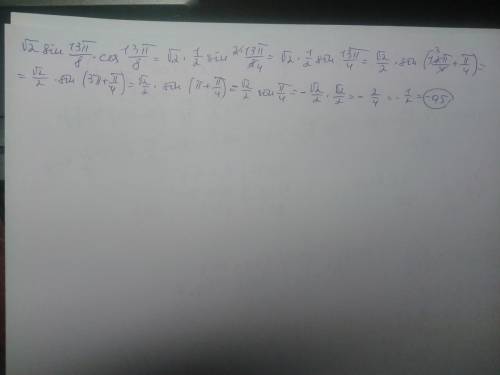 √2 sin 13π/8 · cos 13π/8 = √2 · 1/2 sin 2·13π/8 4 = √2 · 1/2 sin 13π/4 = √2/2 · sin (12π/4 3 + π/4) =
= √2/2 · sin (3π + π/4) = √2/2 · sin (π + π/4) = -√2/2 sin π/4 = -√2/2 · √2/2 = -2/4 = -1/2 = -0,5